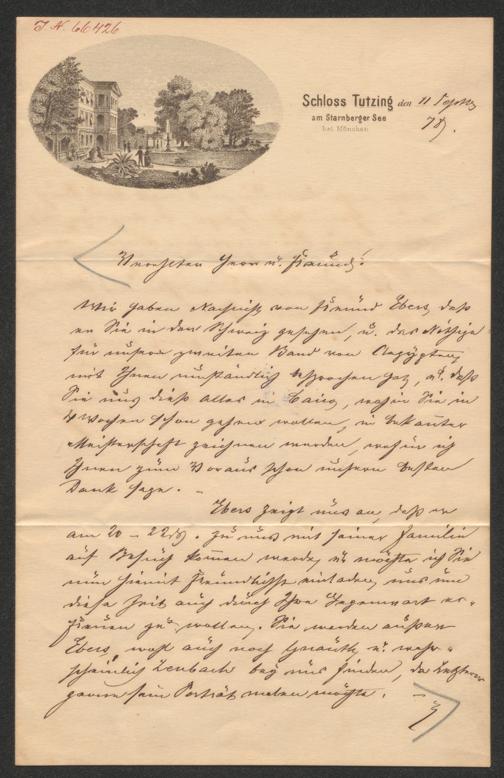 I. N. 66426
Schloss Tutzing den 11 Septbr
am Starnberger See 78.
bei München
Verehrter Herr u. Freund!
Wir haben Nachricht von Freund Ebers, daß
er Sie in der Schweiz gesehen, u. das Nöthige
für unsern zweiten Band von Aegypten,
mit Ihnen umständlich besprochen hat, u. daß
Sie uns dieß alles in Cairo, wohin Sie in
4 Wochen schon gehen wollen, in bekannter
Meisterschaft zeichnen werden, wofür ich
Ihnen zum Voraus schon unsern besten
Dank sage. –
Ebers zeigt uns an, daß er
am 20 – 22 ds. zu uns mit seiner Familie
auf Besuch kommen werde, u. möchte ich Sie
nun hiemit freundlichst einladen, uns um
diese Zeit auch durch Ihre Gegenwart er-
freuen zu wollen. Sie werden außer
Ebers, wohl auch noch Gnauth, u. wahr-
scheinlich Lenbach bey uns finden, da Letzterer
gerne sein Porträt malen möchte. –